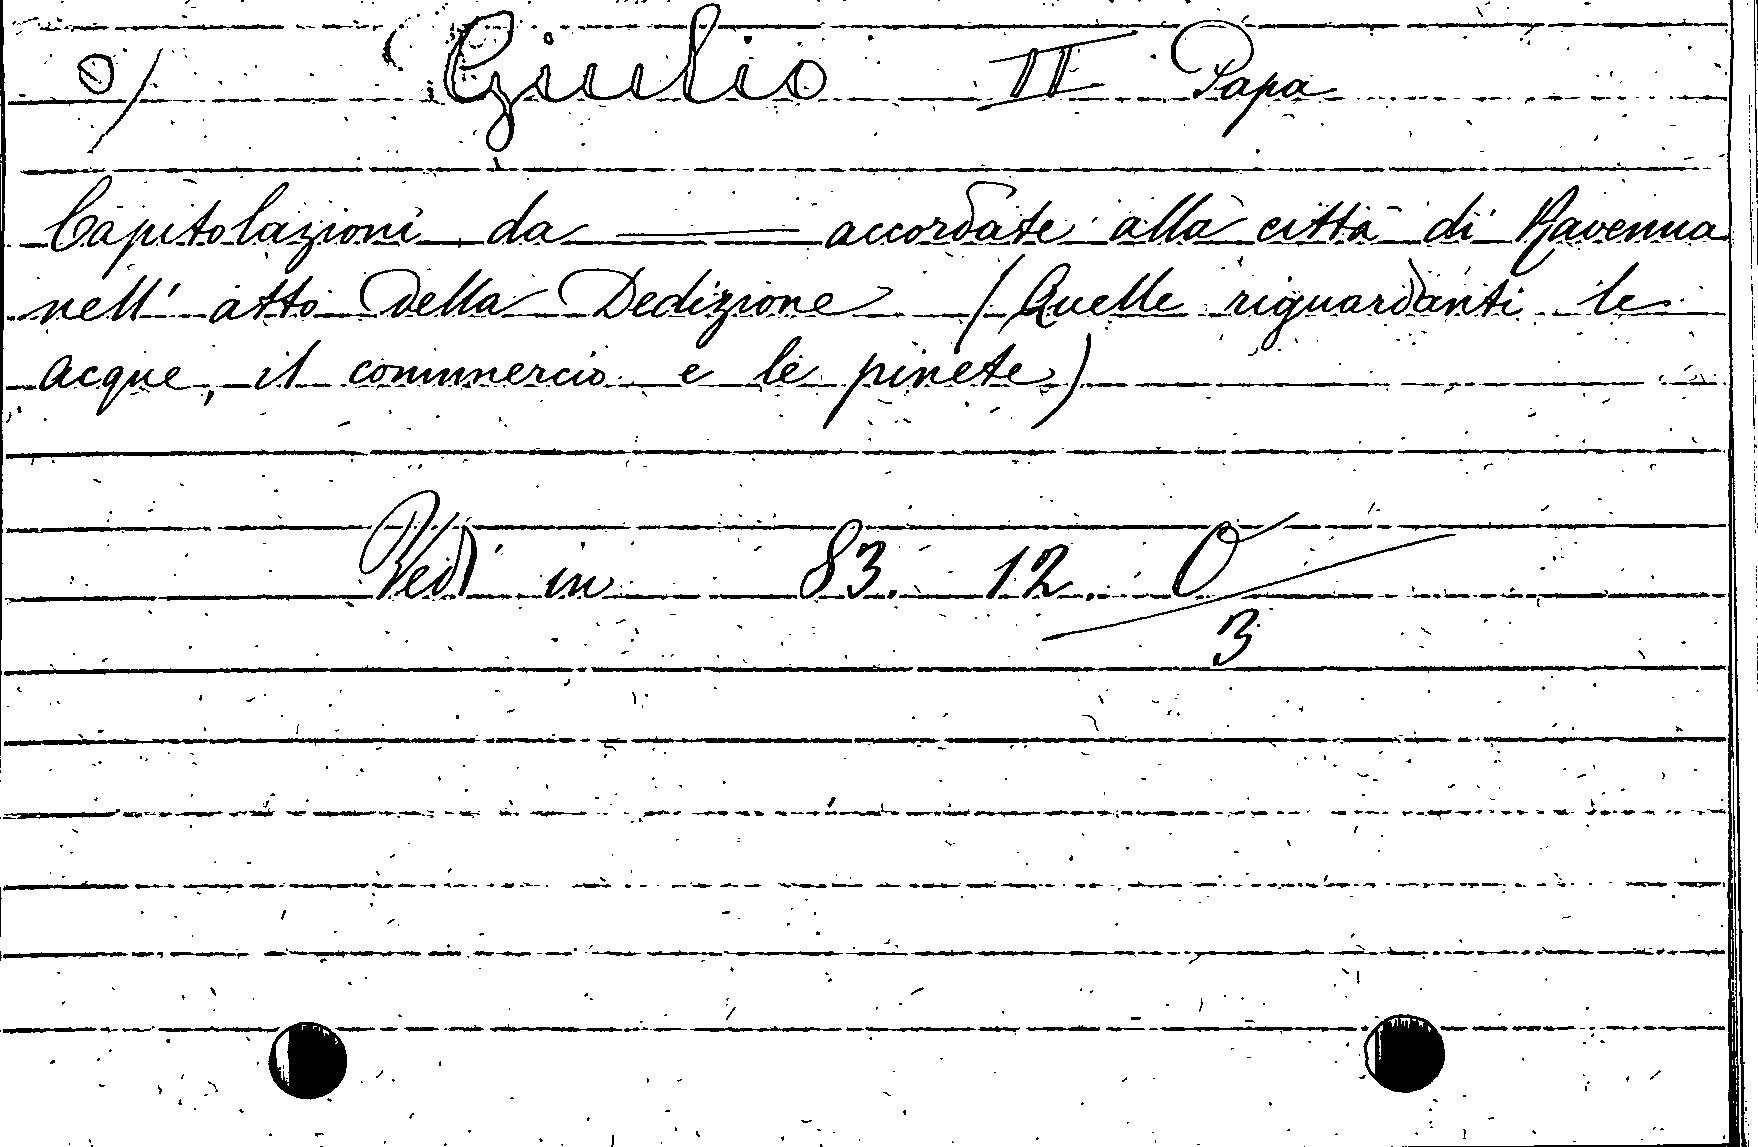 o/ Giulio II Papa
Capitolazioni da —— accordate alla città di Ravenna
nell' atto della Dedizione (Quelle riguardanti le
acque, il commercio e le pinete)
Vedi in 83. 12. O/3